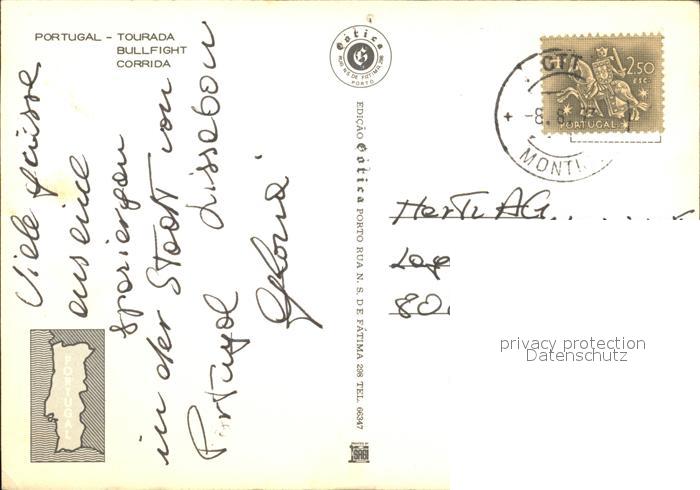 PORTUGAL – TOURADA
BULLFIGHT
CORRIDA
Viele Grüsse
aus eine
spaziergan
in der Stadt von
Portugal Lissabon
Gloria
PORTUGAL
Gótica
RUA N.S. DE FÁTIMA, 298
PORTO
EDIÇÃO Gótica PORTO RUA N. S. DE FÁTIMA 298 TEL. 66347
2$50
PORTUGAL
CTT
-8. 8.
MONTI
80
privacy protection
Datenschutz